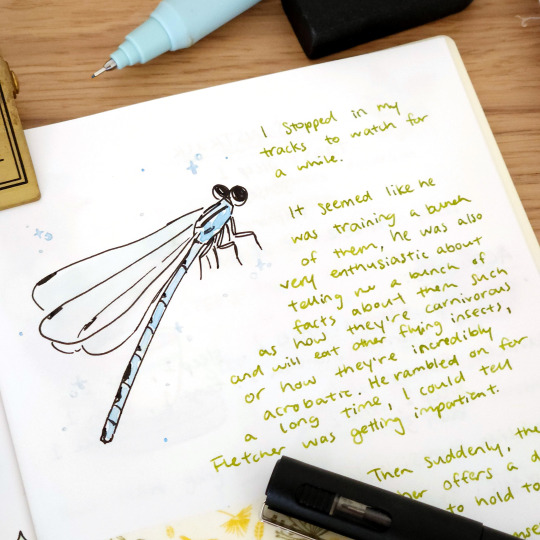 I stopped in my
tracks to watch for
a while.
It seemed like he
was training a bunch
of them, he was also
very enthusiastic about
telling me a bunch of
facts about them such
as how they're carnivorous
and will eat other flying insects,
or how they're incredibly
acrobatic. He rambled on for
a long time, I could tell
Fletcher was getting impatient.
Then suddenly, the
offers a
to hold to